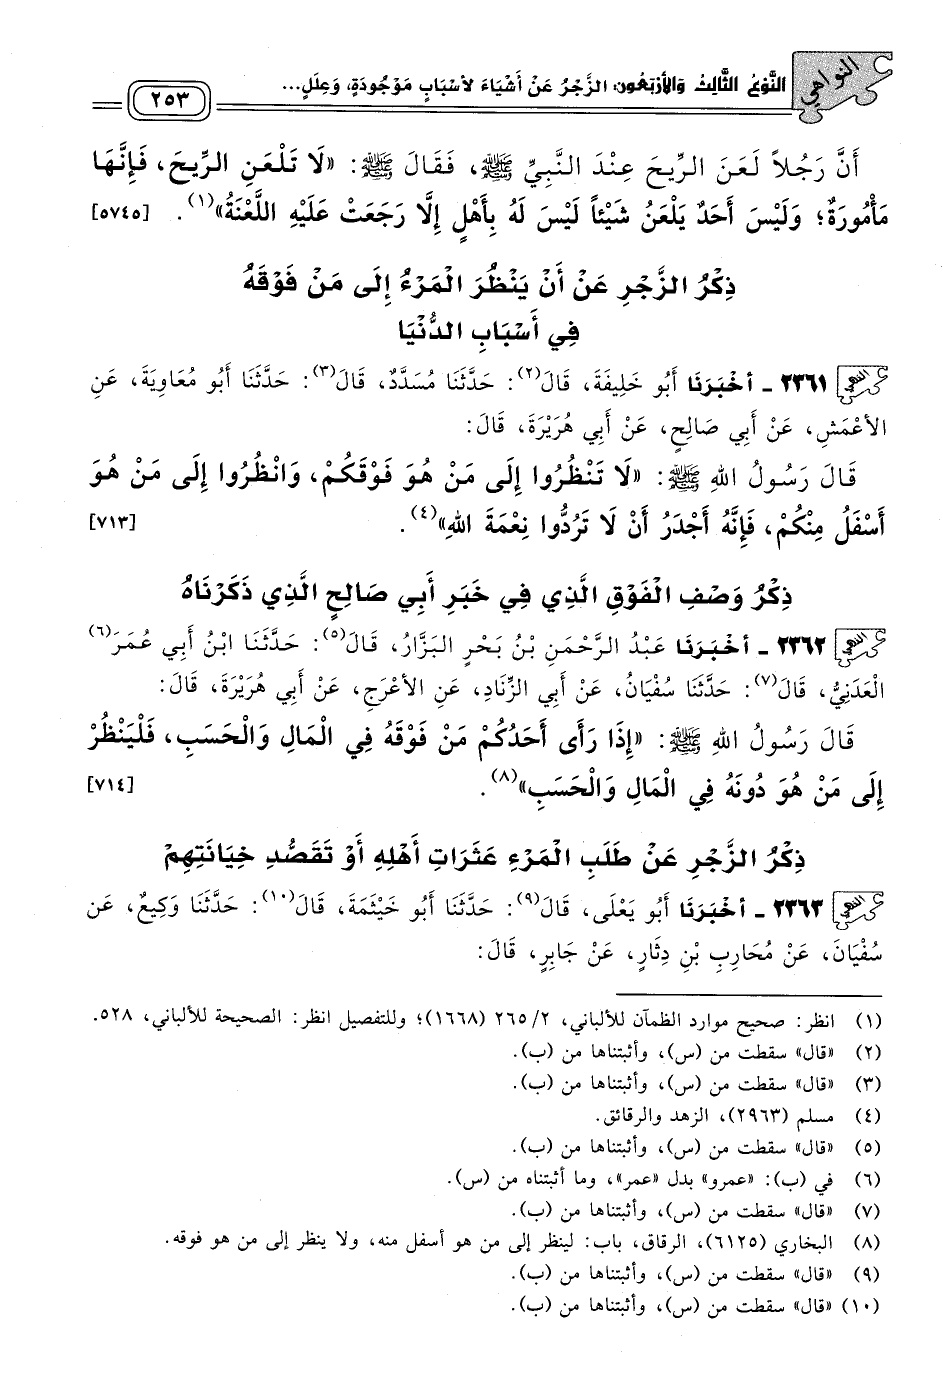 النواهي
النَّوْعُ الثَّالِثُ وَالأَرْبَعُونَ: الزَّجْرُ عَنْ أَشْيَاءَ لأَسْبَابٍ مَوْجُودَةٍ، وَعِلَلٍ...
٢٥٣
أَنَّ رَجُلاً لَعَنَ الرِّيحَ عِنْدَ النَّبِيِّ ﷺ، فَقَالَ ﷺ: «لَا تَلْعَنِ الرِّيحَ، فَإِنَّهَا
مَأْمُورَةٌ؛ وَلَيْسَ أَحَدٌ يَلْعَنُ شَيْئاً لَيْسَ لَهُ بِأَهْلٍ إِلَّا رَجَعَتْ عَلَيْهِ اللَّعْنَةُ»(١). [٥٧٤٥]
ذِكْرُ الزَّجْرِ عَنْ أَنْ يَنْظُرَ الْمَرْءُ إِلَى مَنْ فَوْقَهُ
فِي أَسْبَابِ الدُّنْيَا
٢٣٦١ - أَخْبَرَنَا أَبُو خَلِيفَةَ، قَالَ(٢): حَدَّثَنَا مُسَدَّدٌ، قَالَ(٣): حَدَّثَنَا أَبُو مُعَاوِيَةَ، عَنِ
الأَعْمَشِ، عَنْ أَبِي صَالِحٍ، عَنْ أَبِي هُرَيْرَةَ، قَالَ:
قَالَ رَسُولُ اللهِ ﷺ: «لَا تَنْظُرُوا إِلَى مَنْ هُوَ فَوْقَكُمْ، وَانْظُرُوا إِلَى مَنْ هُوَ
أَسْفَلُ مِنْكُمْ، فَإِنَّهُ أَجْدَرُ أَنْ لَا تَرُدُّوا نِعْمَةَ اللهِ»(٤). [٧١٣]
ذِكْرُ وَصْفِ الْفَوْقِ الَّذِي فِي خَبَرِ أَبِي صَالِحٍ الَّذِي ذَكَرْنَاهُ
٢٣٦٢ - أَخْبَرَنَا عَبْدُ الرَّحْمَنِ بْنُ بَحْرٍ البَزَّارُ، قَالَ(٥): حَدَّثَنَا ابْنُ أَبِي عُمَرَ(٦)
الْعَدَنِيُّ، قَالَ(٧): حَدَّثَنَا سُفْيَانُ، عَنْ أَبِي الزِّنَادِ، عَنِ الأَعْرَجِ، عَنْ أَبِي هُرَيْرَةَ، قَالَ:
قَالَ رَسُولُ اللهِ ﷺ: «إِذَا رَأَى أَحَدُكُمْ مَنْ فَوْقَهُ فِي الْمَالِ وَالْحَسَبِ، فَلْيَنْظُرْ
إِلَى مَنْ هُوَ دُونَهُ فِي الْمَالِ وَالْحَسَبِ»(٨). [٧١٤]
ذِكْرُ الزَّجْرِ عَنْ طَلَبِ الْمَرْءِ عَثَرَاتِ أَهْلِهِ أَوْ تَقَصُّدِ خِيَانَتِهِمْ
٢٣٦٣ - أَخْبَرَنَا أَبُو يَعْلَى، قَالَ(٩): حَدَّثَنَا أَبُو خَيْثَمَةَ، قَالَ(١٠): حَدَّثَنَا وَكِيعٌ، عَنْ
سُفْيَانَ، عَنْ مُحَارِبِ بْنِ دِثَارٍ، عَنْ جَابِرٍ، قَالَ:
(١) انظر: صحيح موارد الظمآن للألباني، ٢/ ٢٦٥ (١٦٦٨)؛ وللتفصيل انظر: الصحيحة للألباني، ٥٢٨.
(٢) «قال» سقطت من (س)، وأثبتناها من (ب).
(٣) «قال» سقطت من (س)، وأثبتناها من (ب).
(٤) مسلم (٢٩٦٣)، الزهد والرقائق.
(٥) «قال» سقطت من (س)، وأثبتناها من (ب).
(٦) في (ب): «عمرو» بدل «عمر»، وما أثبتناه من (س).
(٧) «قال» سقطت من (س)، وأثبتناها من (ب).
(٨) البخاري (٦١٢٥)، الرقاق، باب: لينظر إلى من هو أسفل منه، ولا ينظر إلى من هو فوقه.
(٩) «قال» سقطت من (س)، وأثبتناها من (ب).
(١٠) «قال» سقطت من (س)، وأثبتناها من (ب).